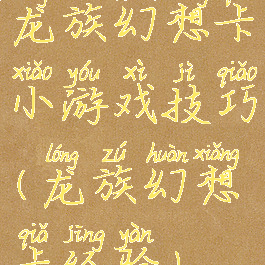 龙族幻想卡
xiǎo yóu xì jì qiǎo
小游戏技巧
lóng zú huàn xiǎng
(龙族幻想
qiǎ jīng yàn
卡经验)